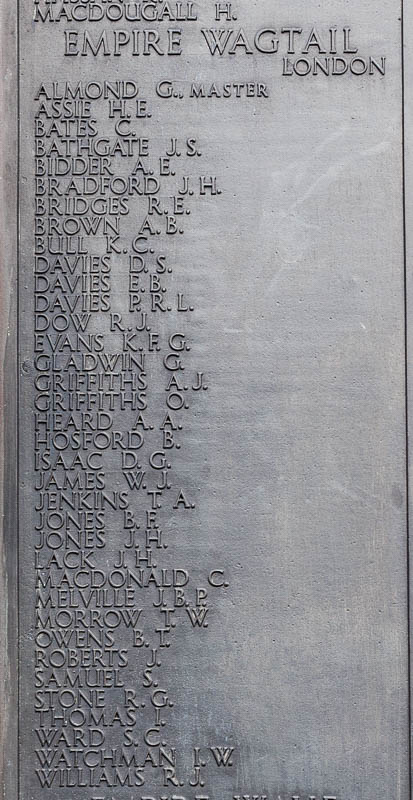 MACDOUGALL H.
EMPIRE WAGTAIL
LONDON
ALMOND G., MASTER
ASSIE H.E.
BATES C.
BATHGATE J.S.
BIDDER A.E.
BRADFORD J.H.
BRIDGES R.E.
BROWN A.B.
BULL K.C.
DAVIES D.S.
DAVIES E.B.
DAVIES P.R.L.
DOW R.J.
EVANS K.F.G.
GLADWIN G.
GRIFFITHS A.J.
GRIFFITHS O.
HEARD A.A.
HOSFORD B.
ISAAC D.G.
JAMES W.J.
JENKINS T.A.
JONES B.F.
JONES J.H.
LACK J.H.
MACDONALD C.
MELVILLE J.B.P.
MORROW T.W.
OWENS B.T.
ROBERTS J.
SAMUEL S.
STONE R.G.
THOMAS I.
WARD S.C.
WATCHMAN I.W.
WILLIAMS R.J.